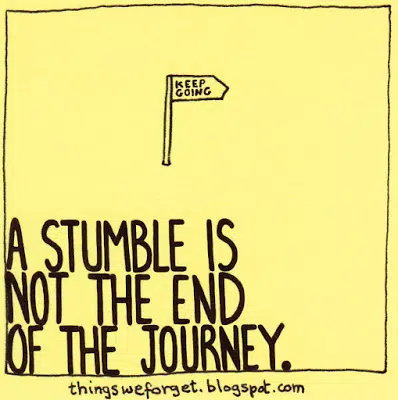 KEEP
GOING
A STUMBLE IS
NOT THE END
OF THE JOURNEY.
thingsweforget.blogspot.com